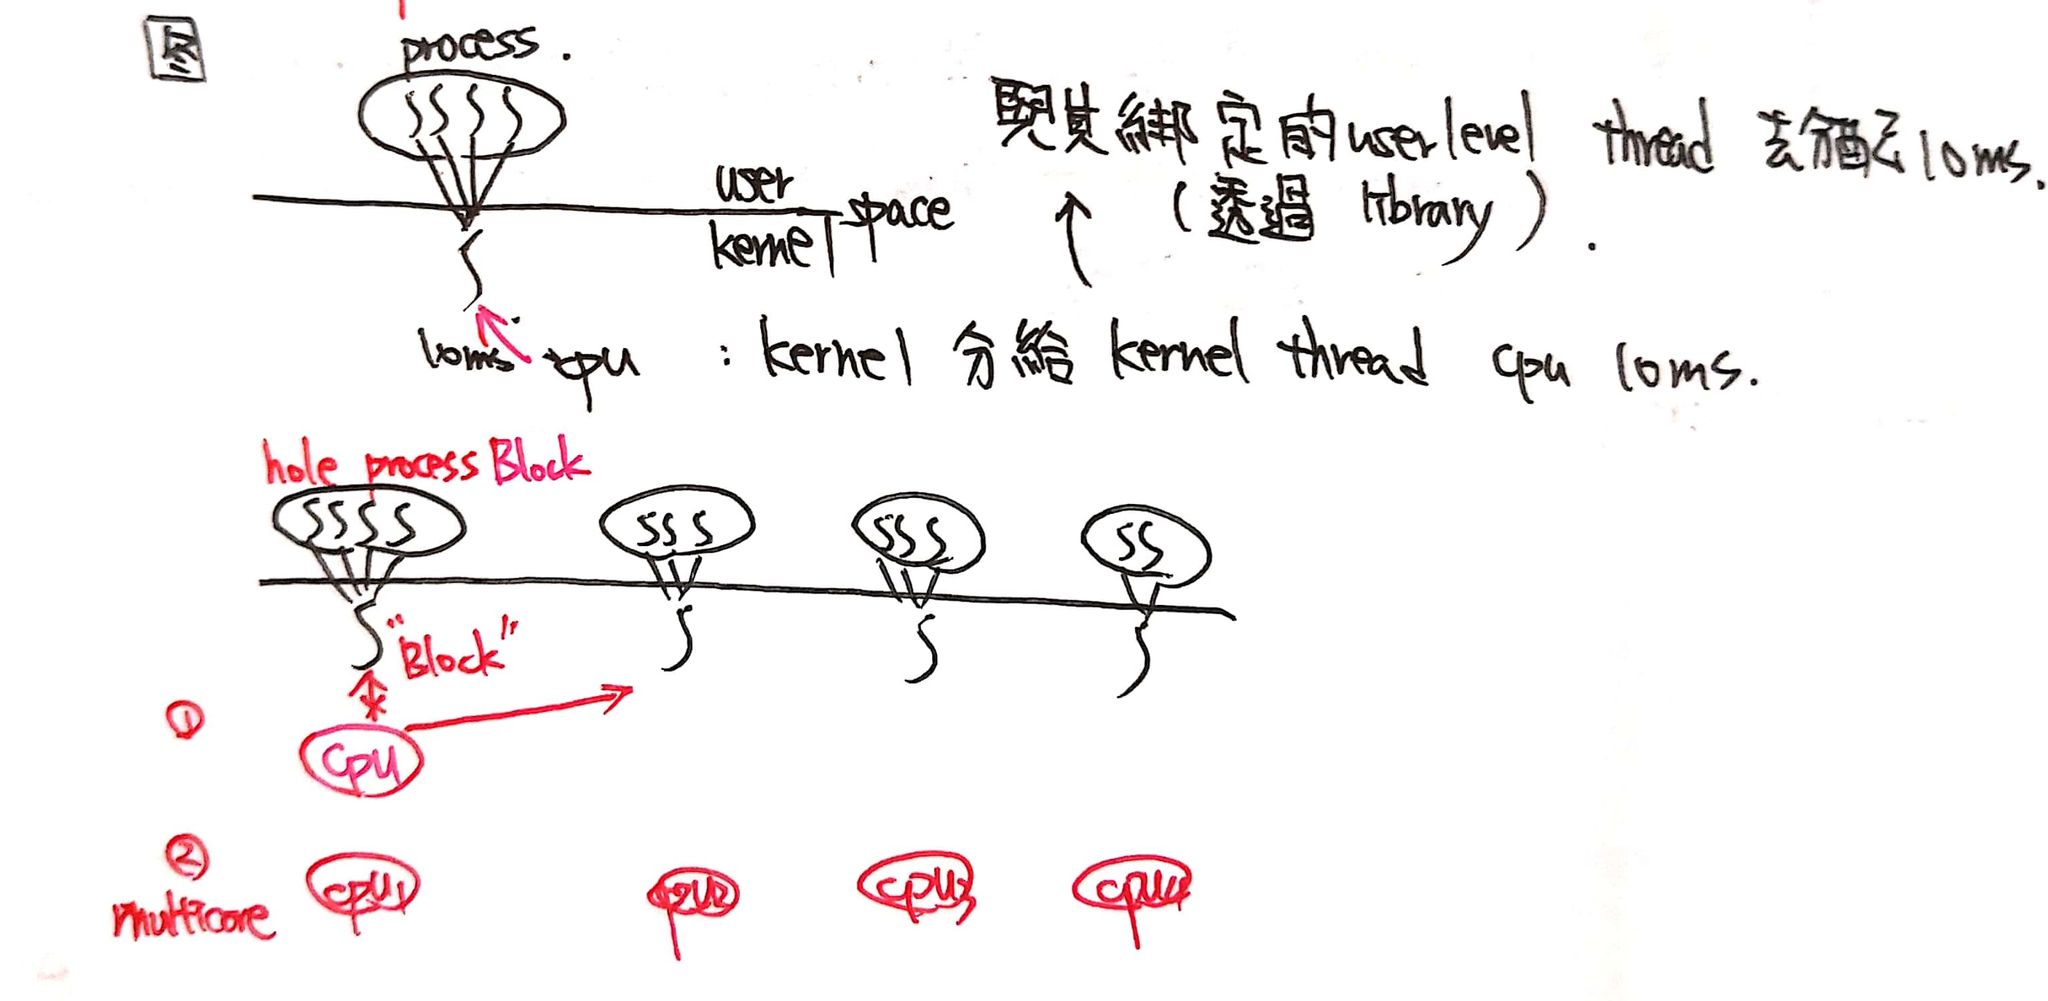 图
process.
user
space
kernel
與其綁定的userlevel thread 去分配10ms.
(透過 library).
10ms cpu : kernel 分給 kernel thread cpu 10ms.
hole process Block
"Block"
①
cpu
②
multicore
cpu1 cpu2 cpu3 cpu4